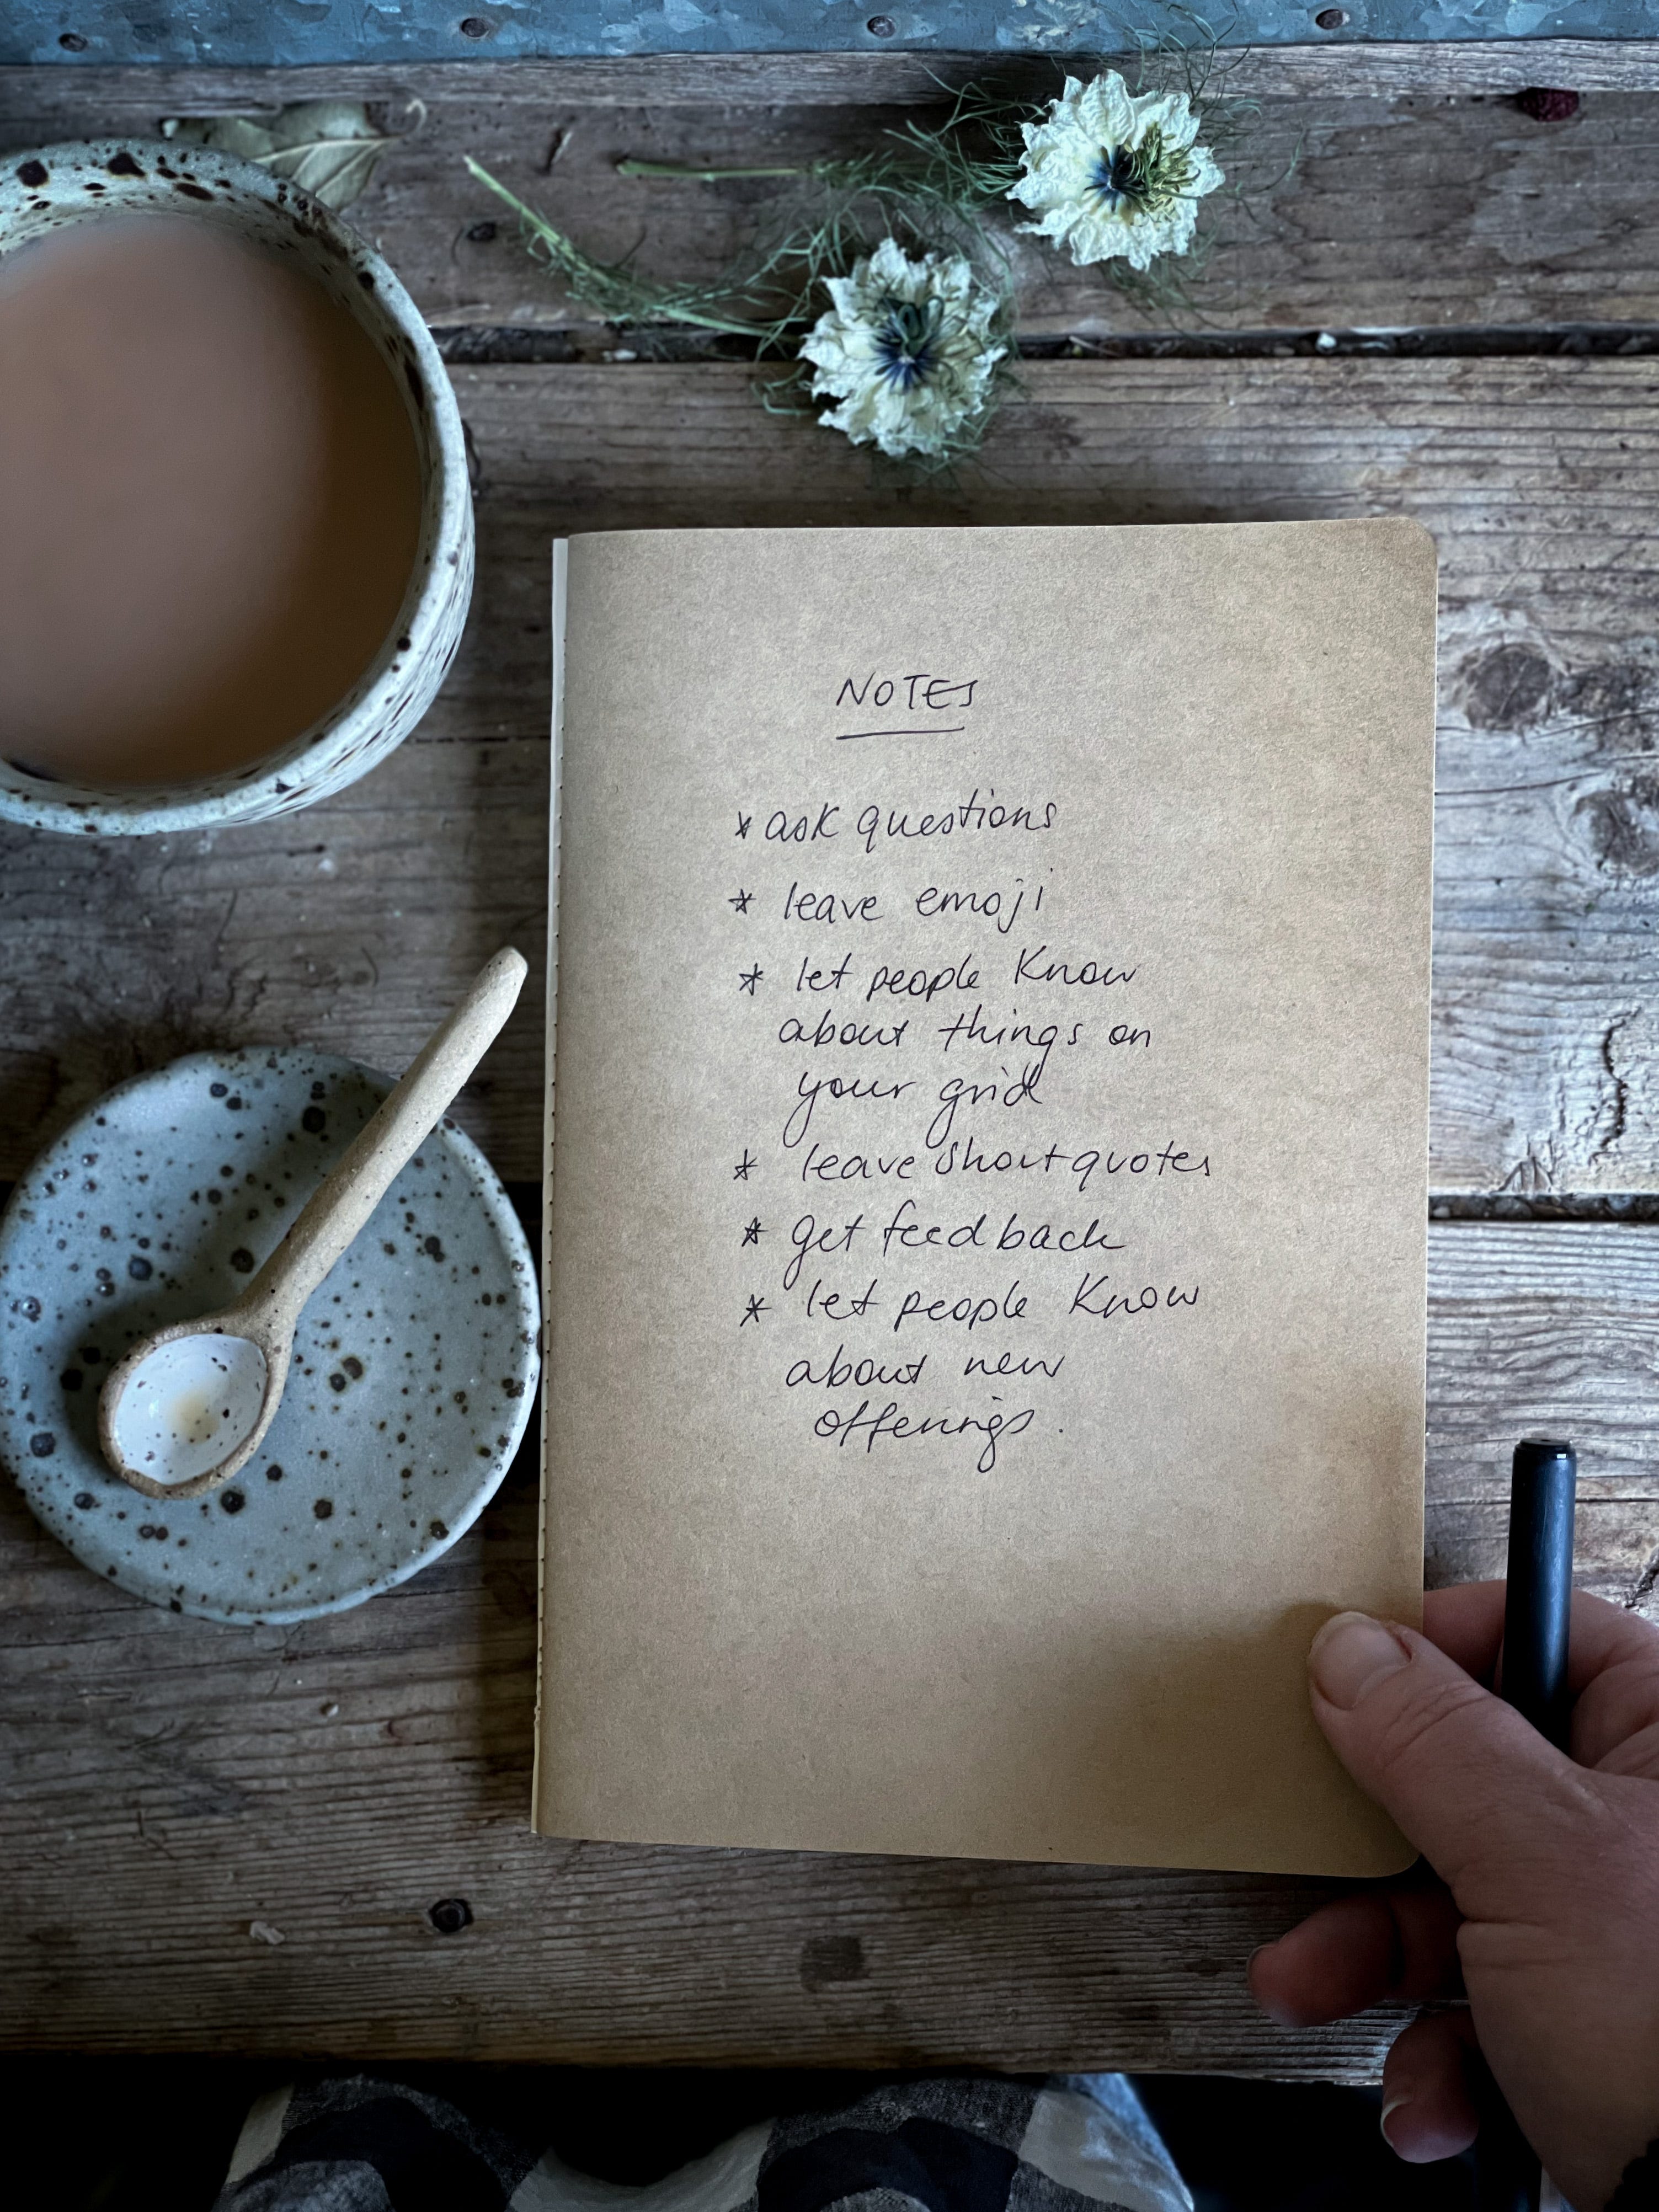 NOTES
* ask questions
* leave emoji
* let people know
about things on
your grid
* leave short quotes
* get feedback
* let people know
about new
offerings.